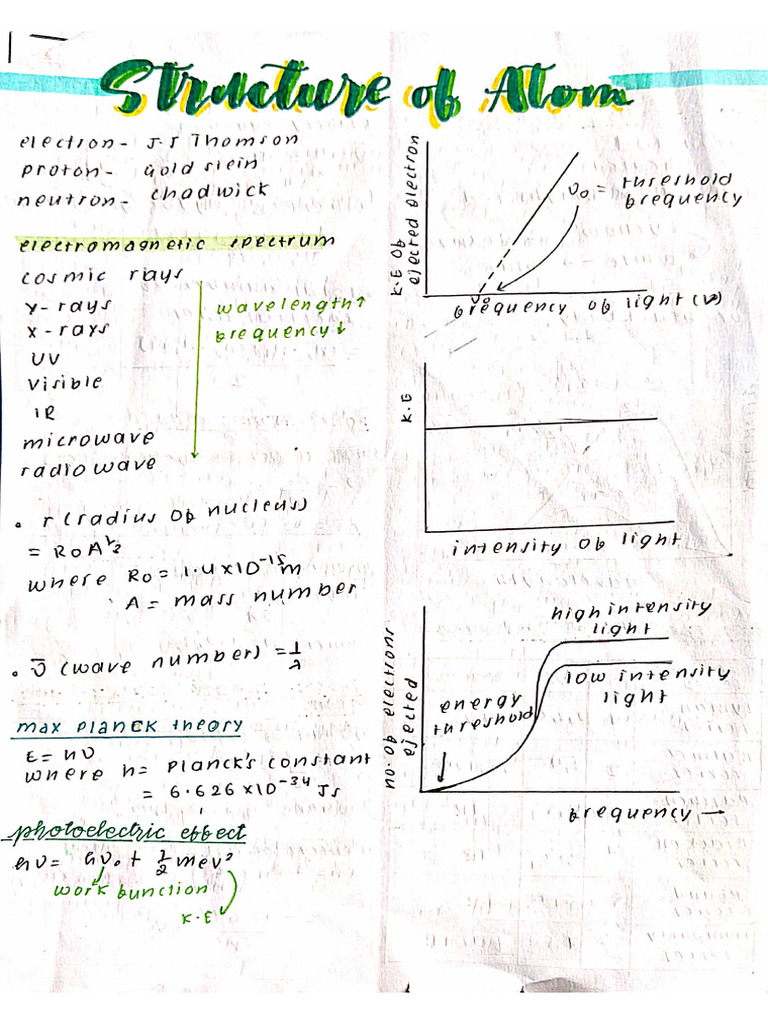 Structure of Atom
electron - J.J Thomson
proton - Gold stein
neutron - chadwick
electromagnetic spectrum
cosmic rays
γ-rays
x-rays
UV
visible
IR
microwave
radio wave
wavelength↑
frequency↓
• r (radius of nucleus)
= R₀A^½
where R₀ = 1.4×10⁻¹⁵m
A = mass number
• ῡ (wave number) = 1/λ
max planck theory
E = hυ
where h = Planck's constant
= 6.626×10⁻³⁴ Js
photoelectric effect
hυ = hυ₀ + ½mev²
work function
K.E
K.E of ejected electron
υ₀ = threshold frequency
υ₀
frequency of light (ν)
K.E
intensity of light
no. of electrons ejected
high intensity
light
low intensity
light
energy
threshold
frequency →